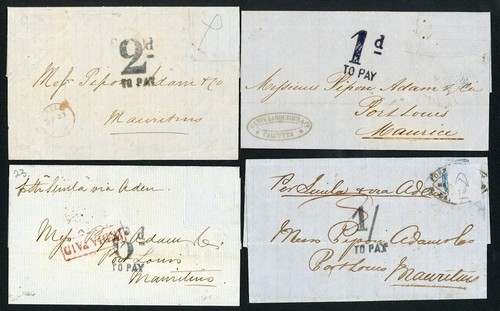 2d
TO PAY
Mess Pipon Adam & Co
Mauritius
1d
TO PAY
Messieurs Pipon Adam & Cie
Port Louis
Maurice
CALCUTTA
23
via Aden
INDIA PAID
d
TO PAY
Mess Adam & Co
Port Louis
Mauritius
Per Simla via Aden
1/
TO PAY
Messrs Pipon Adam & Co
Port Louis Mauritius